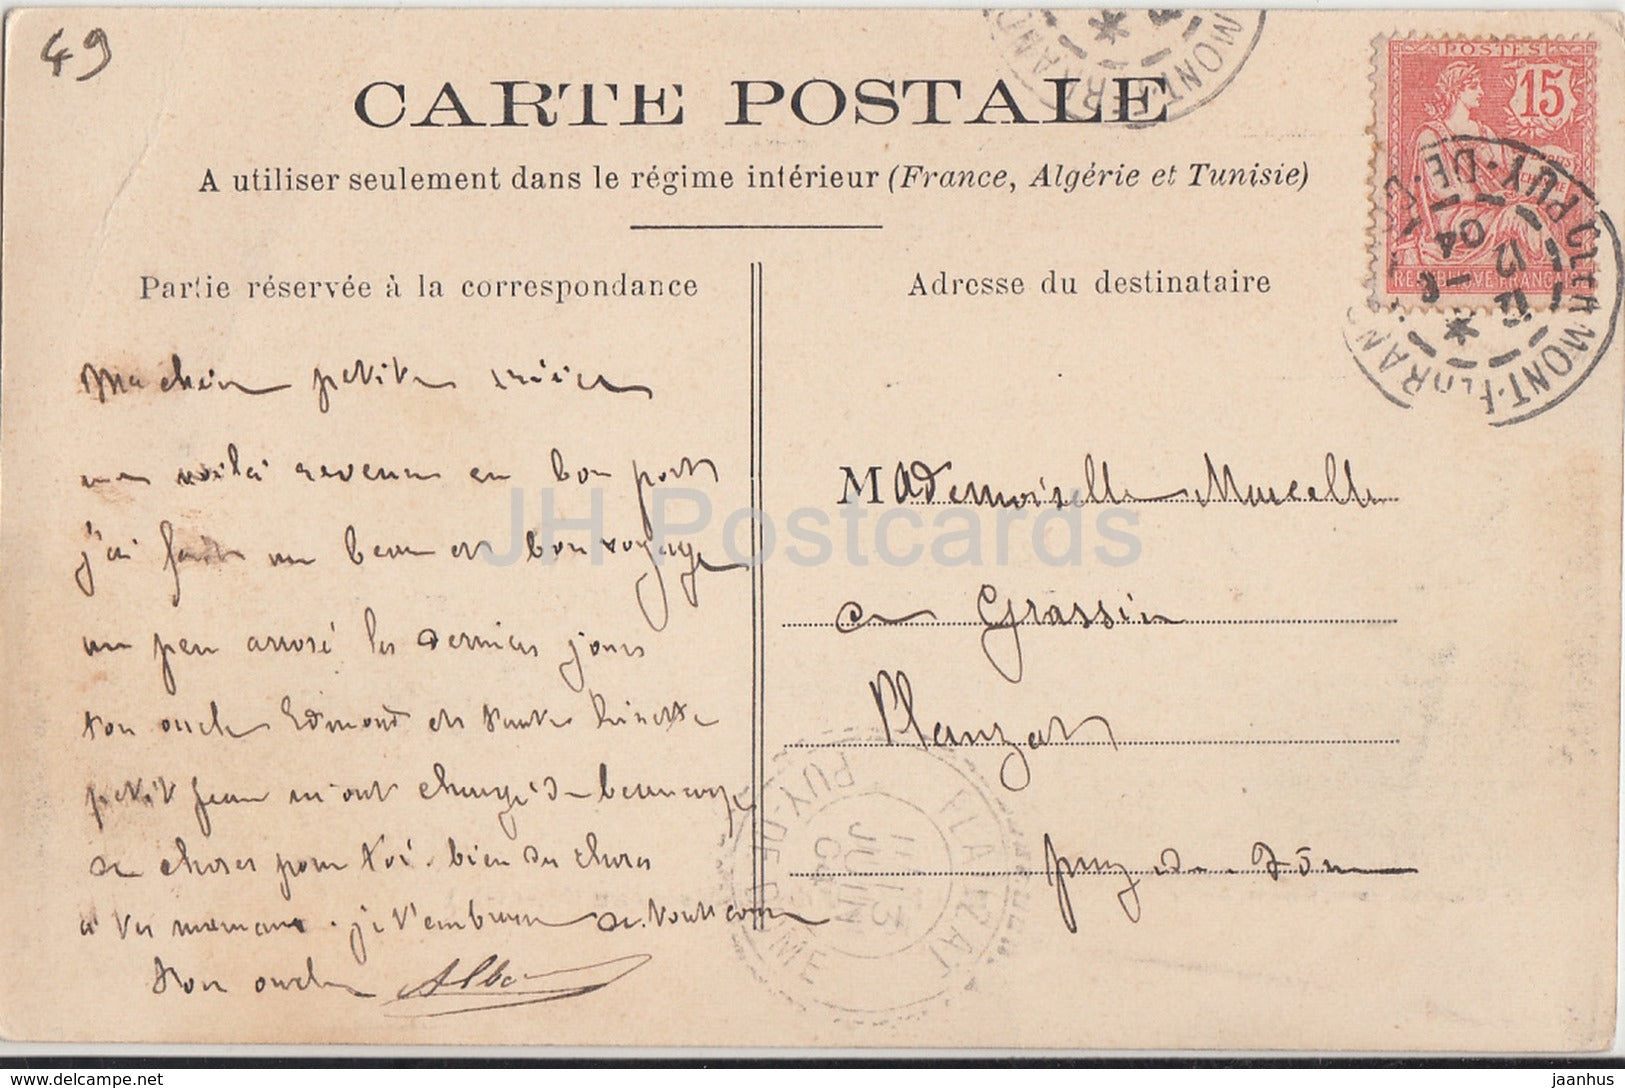 49
CARTE POSTALE
A utiliser seulement dans le régime intérieur (France, Algérie et Tunisie)
Partie réservée à la correspondance
Ma chère petite nièce
me voilà revenu en bon port
j'ai fait un beau et bon voyage
un peu arrosé les derniers jours
ton oncle Edmond et tante Ninette
petit Jean m'ont chargé de beaucoup
de choses pour toi. bien des choses
à tes mamans. je t'embrasse de tout cœur
Ton oncle
Adresse du destinataire
Mademoiselle Marcelle
Grassin
Planzat
puy-de-dôme
POSTES
15
RÉPUBLIQUE FRANÇAISE
CLERMONT-FERRAND
PUY-DE-
12
04
MONT-FERRAND
PLAUZAT
PUY-DE-DOME
13
JUIN
04
JH Postcards
akpool.de
jaanhus